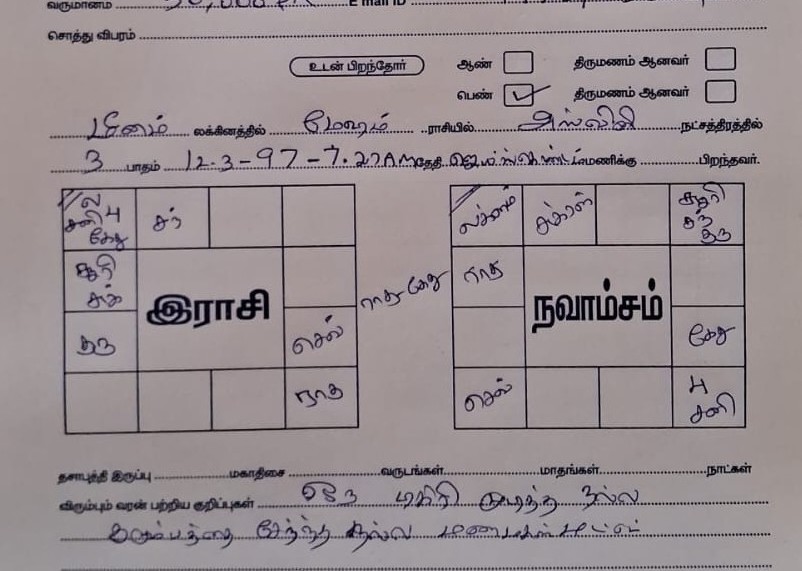 வருமானம் E mail ID
சொத்து விபரம்
உடன் பிறந்தோர் ஆண் திருமணம் ஆனவர்
பெண் திருமணம் ஆனவர்
மீனம் லக்கினத்தில் மேஷம் ராசியில் அஸ்வினி நட்சத்திரத்தில்
3 பாதம் 12-3-97-7.27AM தேதி மணிக்கு பிறந்தவர்.
ல
சனி பு
கேது
சந்
சூரி
சுக்
குரு
இராசி
செவ்
ராகு
ராகு கேது
லக்னம்
சுக்ரன்
சூரி
சந்
குரு
ராகு
நவாம்சம்
கேது
செவ்
பு
சனி
தசாபுத்தி இருப்பு மகாதிசை வருடங்கள் மாதங்கள் நாட்கள்
விரும்பும் வரன் பற்றிய குறிப்புகள் நல்ல
குடும்பத்தை சேர்ந்த நல்ல மணமகன்